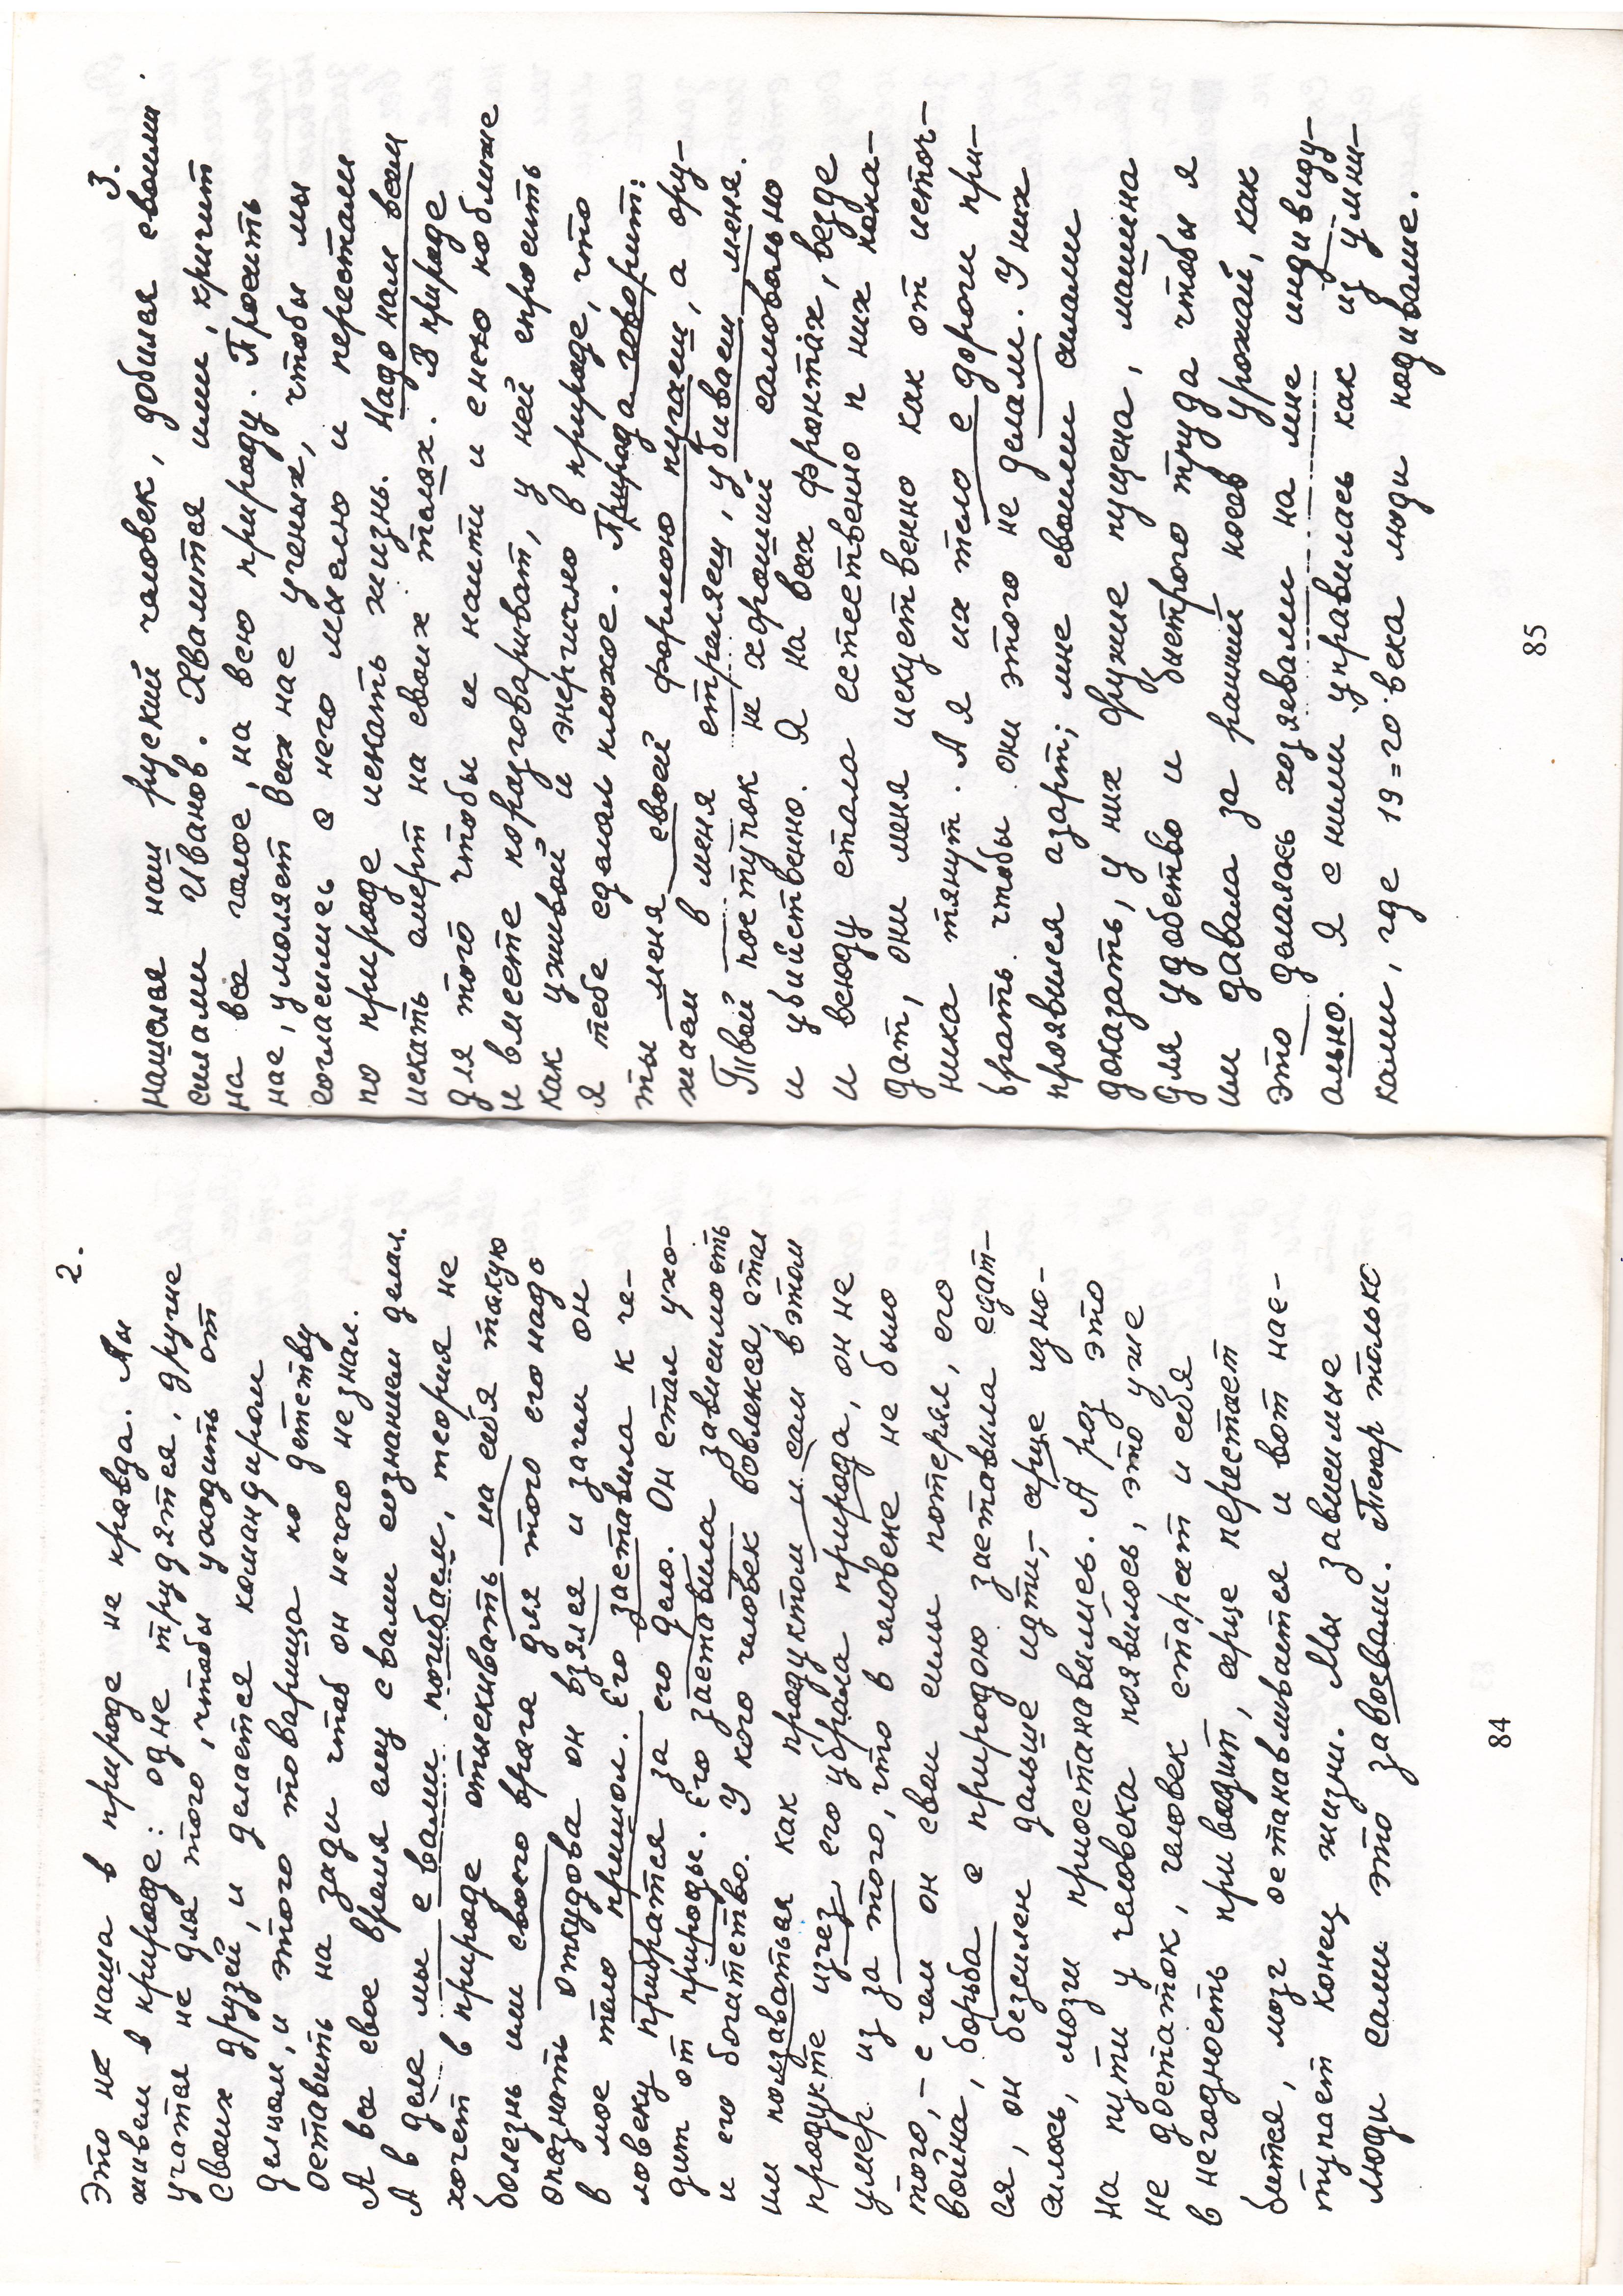 2.
Это не наша в природе не правда. Мы
живем в природе: одне трудятся, другие
учатся не для того, чтобы уходить от
своих друзей, и делается командиром
дельцом, и этого товарища по детству
оставить на зади чтоб он нечого не знал.
А все свое время ему с вами сознанием делал.
А в деле мы с вами пошибаем, теория не
хочет в природе отыскивать на себя такую
болезнь или своего врага для того его надо
опазнать откудова он взялся и зачем он
в мое тело пришол. Его заставила к че-
ловеку прибратся за его дело. Он стал ухо-
дит от природы. Его заставила зависимость
и его богатство. У кого человек вовлекся, стал
им ползаваться как продуктом и сам в этом
продукте изчез, его убрала природа, он не
умер из за того, что в человеке не было
того,– с чем он свои силы потерял, его
война, борьба с природою заставила сдат–
ся, он безсилен дальше идти,– срце изно–
силось, мозги приостанавились. А раз это
на пути у человека появилось, это уже
не достаток, человек старает и себя
в негодность приводит, срце перестает
битея, мозг останавливается и вот нас–
тупает конец жизни. Мы зависимые
люди сами это завоевали. Тепер только
84
3.
нашолся наш руский человек, добился своими
силами Иванов. Хвалится ими, кричит
на все голос, на всю природу. Просить
нас, умоляет всех нас ученых, чтобы мы
согласились с него мыслею и перестали
по природе искать жизнь. Надо нам всем
искать смерт на своих телах. В природе
для того чтобы ее найти и с нею поближе
и вместе поразговариват, у ней спросить
как уживой и энергично в природе, что
я тебе сделал плохое. Природа говорит:
ты меня своей формою пугаеш, а ору–
жием в меня стреляеш, убиваеш меня.
Твой поступок не хороший самовольно
и убийственно. Я на всех фронтах, везде
и всюду стала естественно п них пока–
дат, они меня искуственно как от источ–
ника тянут. А я их тело с дороги при–
брать. чтобы они этого не делали. У них
проявился азарт; мне своими силами
доказать, у них оружие пущена, машина
для удобство и быстрого труда чтобы я
им давала за ранний посев урожай, как
это делалось хозяевами на мне индивиду–
ально. Я с ними управилась как из умни–
ками, где 19=20 века люди надиваше.
85